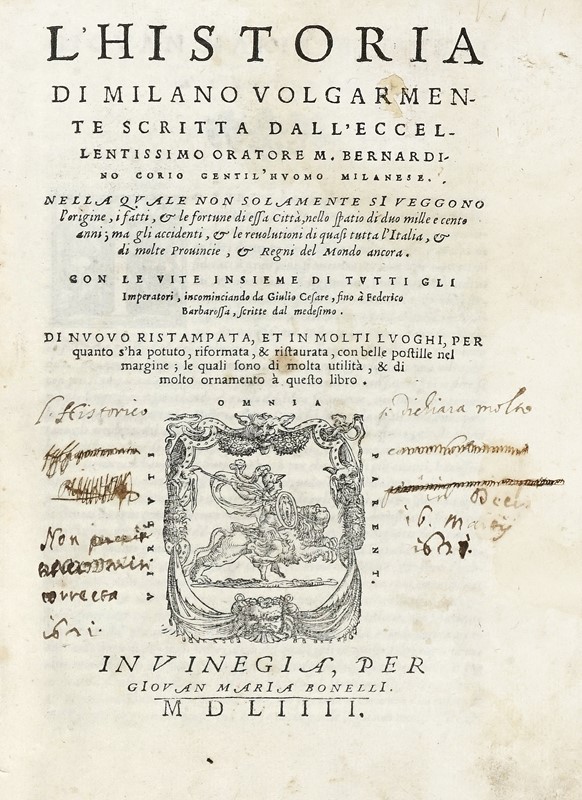 L'HISTORIA
DI MILANO VOLGARMEN-
TE SCRITTA DALL'ECCEL-
LENTISSIMO ORATORE M. BERNARDI-
NO CORIO GENTIL'HVOMO MILANESE.
NELLA QVALE NON SOLAMENTE SI VEGGONO
l'origine, i fatti, & le fortune di essa Città, nello spatio di duo mille e cento
anni; ma gli accidenti, & le reuolutioni di quasi tutta l'Italia, &
di molte Prouincie, & Regni del Mondo ancora.
CON LE VITE INSIEME DI TVTTI GLI
Imperatori, incominciando da Giulio Cesare, fino à Federico
Barbarossa, scritte dal medesimo.
DI NUOVO RISTAMPATA, ET IN MOLTI LVOGHI, PER
quanto s'ha potuto, riformata, & ristaurata, con belle postille nel
margine; le quali sono di molta utilità, & di
molto ornamento à questo libro.
OMNIA
VIRTVTI
PARENT.
Historico
dichiara molto
Non
correcta
1621.
16. Martij
1621.
IN VINEGIA, PER
GIOVAN MARIA BONELLI.
M D LIIII.